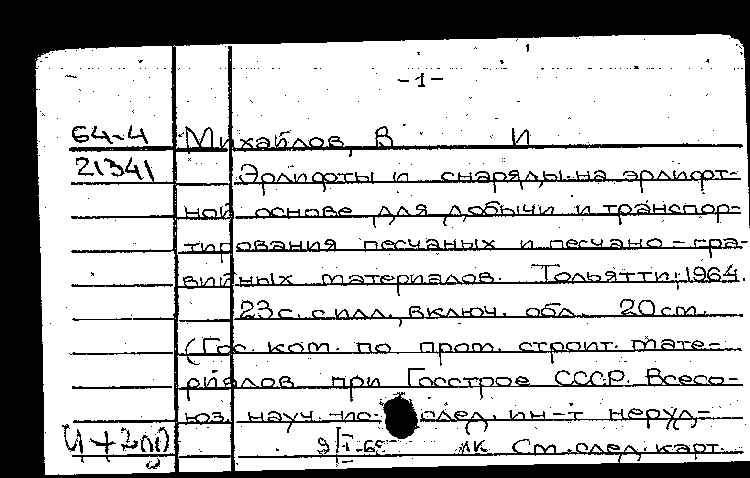 -1-
64-4 Михайлов, В И
21341 Эрлифты и снаряды на эрлифт-
ной основе для добычи и транспор-
тирования песчаных и песчано-гра-
вийных материалов. Тольятти, 1964.
23 с. с илл., включ. обл. 20 см.
(Гос. ком. по пром. строит. мате-
риалов при Госстрое СССР. Всесо-
юз. науч. -ис- след. ин-т неруд-
Ч+200 9/I-65 ЛК См. след. карт.